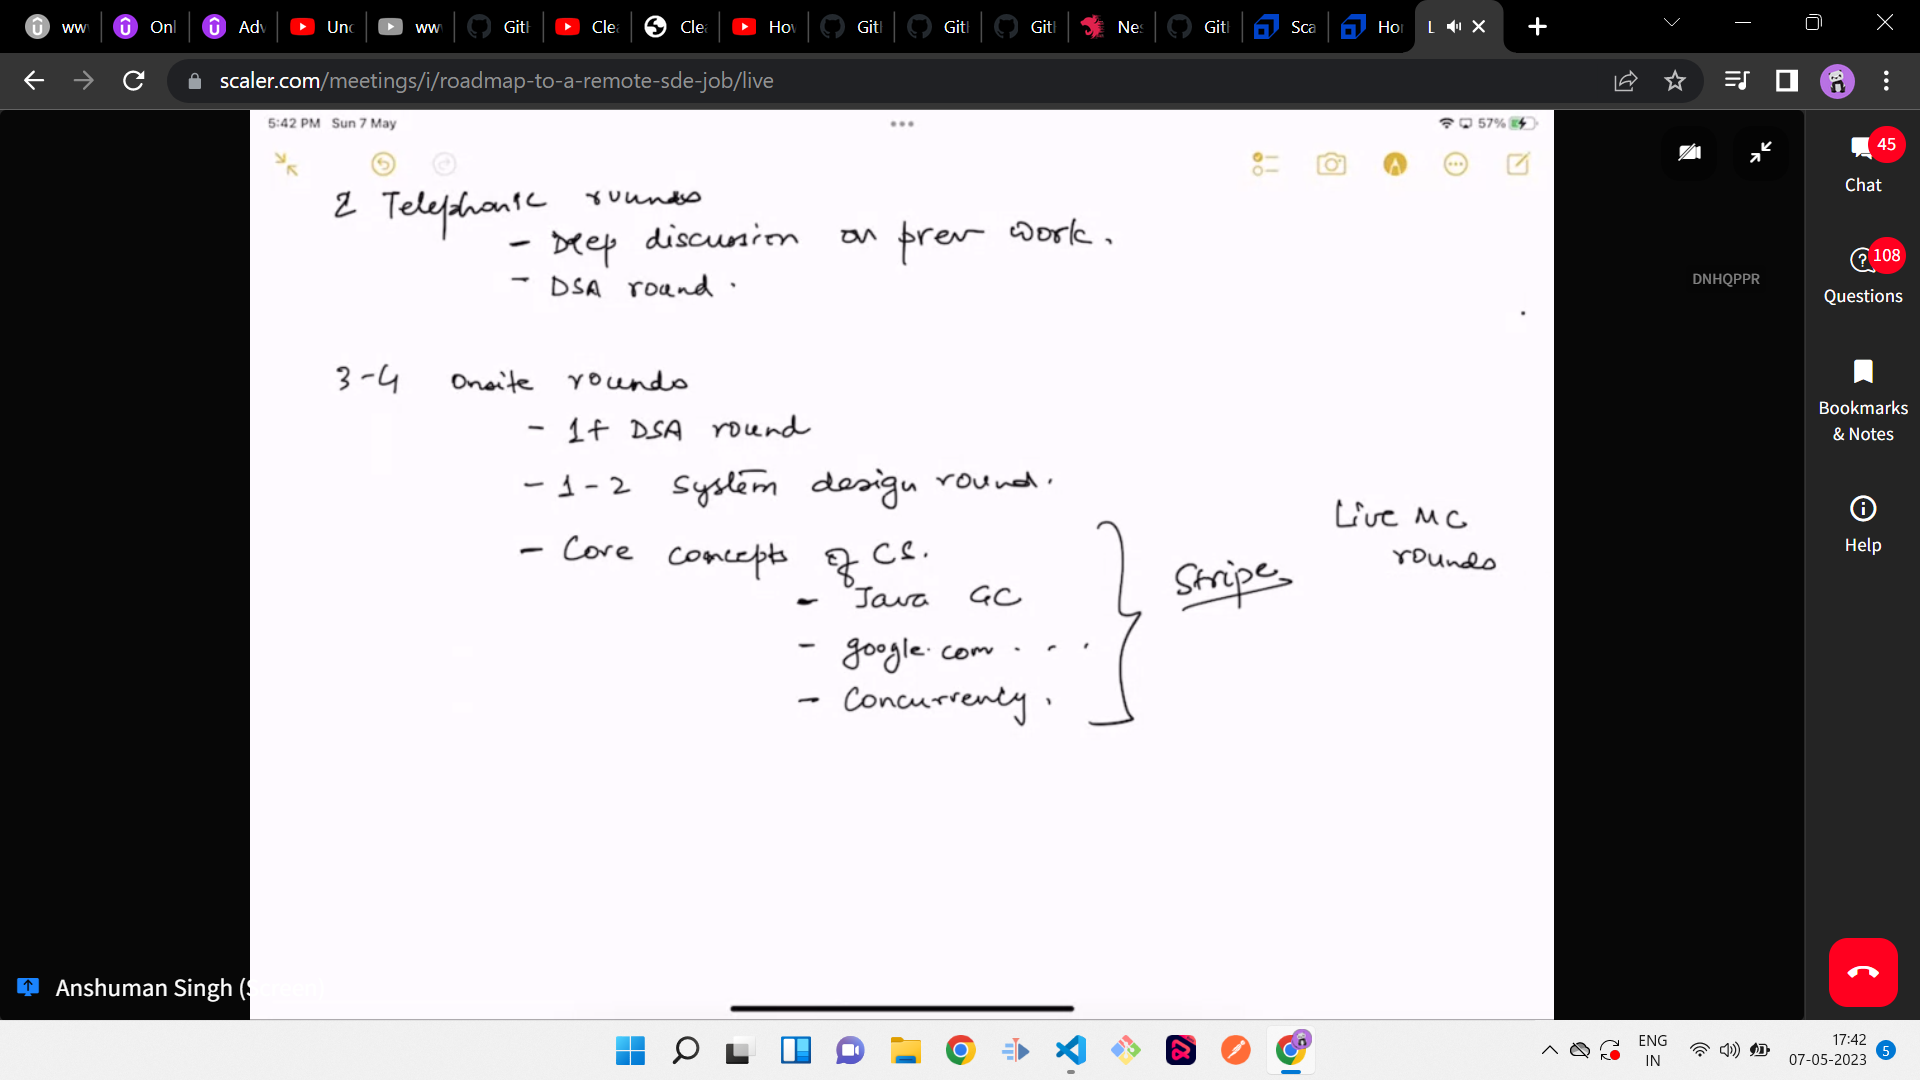 ww
Onl
Adv
Unc
ww
Gitl
Clea
Clea
Hov
Gitl
Gitl
Gitl
Nes
Gitl
Sca
Hor
L
scaler.com/meetings/i/roadmap-to-a-remote-sde-job/live
5:42 PM Sun 7 May
57%
2 Telephonic rounds
- Deep discussion on prev work.
- DSA round.
3-4 Onsite rounds
- 1+ DSA round
- 1-2 System design round.
- Core concepts of CS.
- Java GC
- google.com . . .
- Concurrency.
Stripe
Live MC
rounds
DNHQPPR
45
Chat
108
Questions
Bookmarks
& Notes
Help
Anshuman Singh (Screen)
ENG
IN
17:42
07-05-2023
5